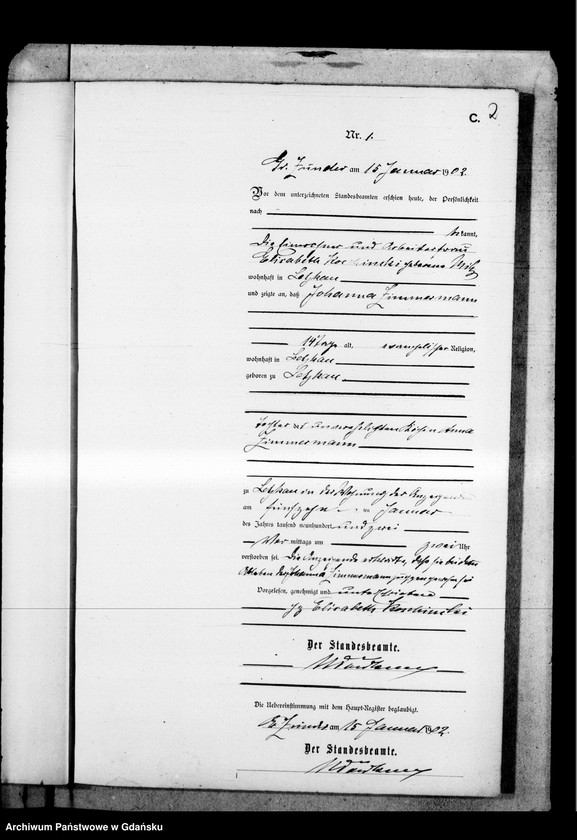 C. 2
Nr. 1.
Gr. Zünder am 15 Januar 1902.
Vor dem unterzeichneten Standesbeamten erschien heute, der Persönlichkeit
nach
bekannt,
die Einwohner und Arbeiterfrau
Elisabeth Koschinski geborene
wohnhaft in Letzkau
und zeigte an, daß Johanna Zimmermann
14 Tage alt, evangelischer Religion,
wohnhaft in Letzkau
geboren zu Letzkau
Tochter der unverehelichten Anna
Zimmermann
zu Letzkau in der Wohnung der Anzeigenden
am fünfzehn ten Januar
des Jahres tausend neunhundert und zwei
Vor mittags um zwei Uhr
verstorben sei. Die Anzeigende erklärte, daß sie bei dem
Ableben der Johanna Zimmermann zugegen gewesen sei
Vorgelesen, genehmigt und unterschrieben
gz Elisabeth Koschinski
Der Standesbeamte.
Die Uebereinstimmung mit dem Haupt-Register beglaubigt.
Gr. Zünder am 15 Januar 1902.
Der Standesbeamte.
Archiwum Państwowe w Gdańsku